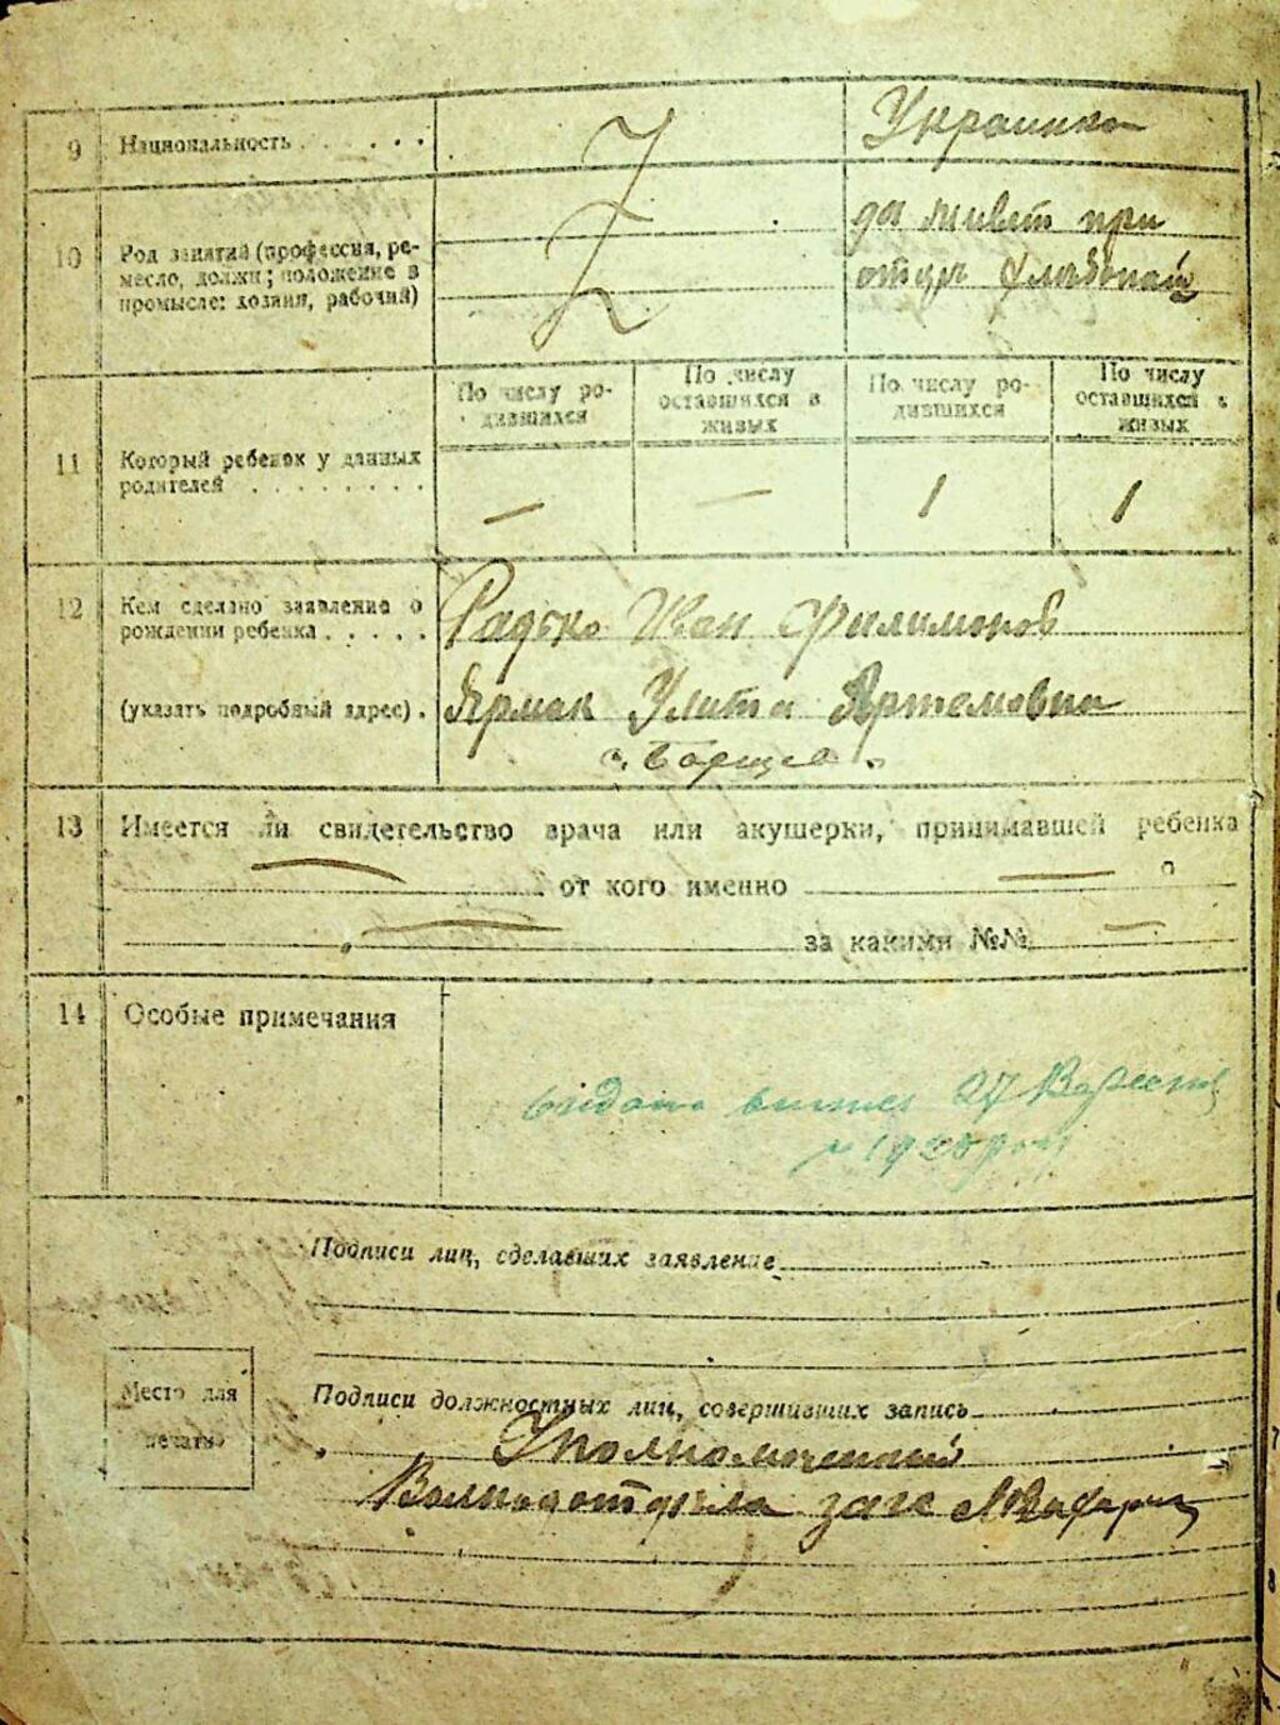 9 Национальность . . . . . .
Украинка
10 Род занятий (профессия, ре-
месло, должн; положение в
промысле: хозяин, рабочий)
да живет при
отце
11 Который ребенок у данных
родителей . . . . . . . .
По числу ро-
дившихся
По числу
оставшихся в
живых
По числу ро-
дившихся
По числу
оставшихся в
живых
— — 1 1
12 Кем сделано заявление о
рождении ребенка . . . . .
(указать подробный адрес) .
Радько Иван Филимонов
Ярмак Улита Артемовна
Борщев
13 Имеется ли свидетельство врача или акушерки, принимавшей ребенка
— от кого именно —
— за какими №№ —
14 Особые примечания
видано 27 Вересня
Подписи лиц, сделавших заявление
Место для
печати
Подписи должностных лиц, совершивших запись
Уполномоченный
загс